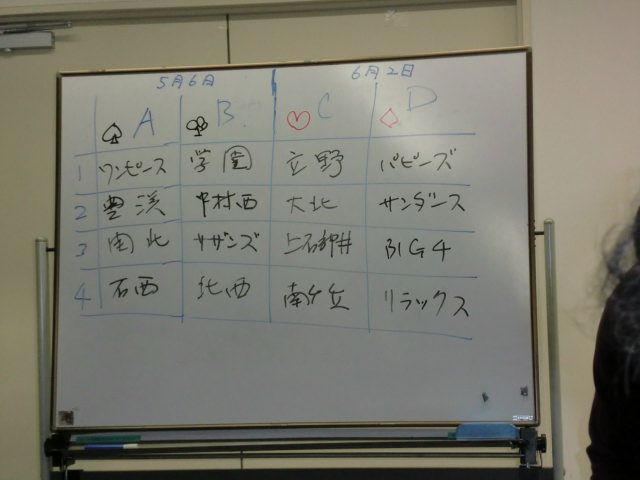 5月6日 6月2日
A B C D
1 ワンピース 学園 立野 パピーズ
2 豊渓 中村西 大北 サンダース
3 南北 サザンズ 上石神井 BIG4
4 石西 北西 南ケ丘 リラックス